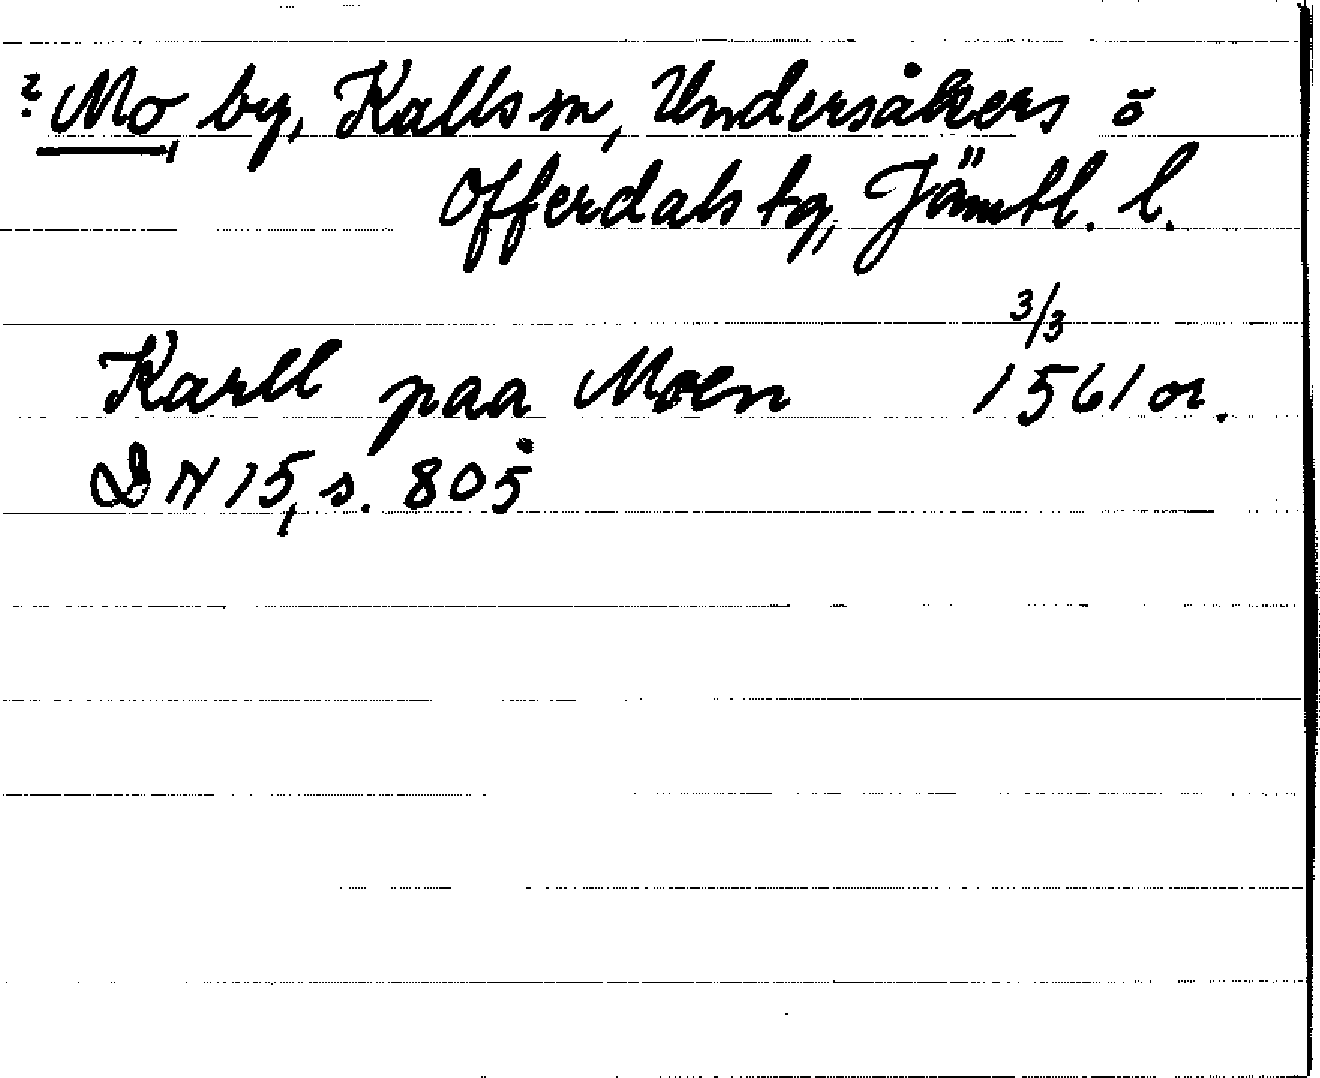 ? Mo by, Kalls sn, Undersåkers o
Offerdals tg, Jämtl. l.
3/3
Karll paa Moen 1561 or.
DN 15, s. 805